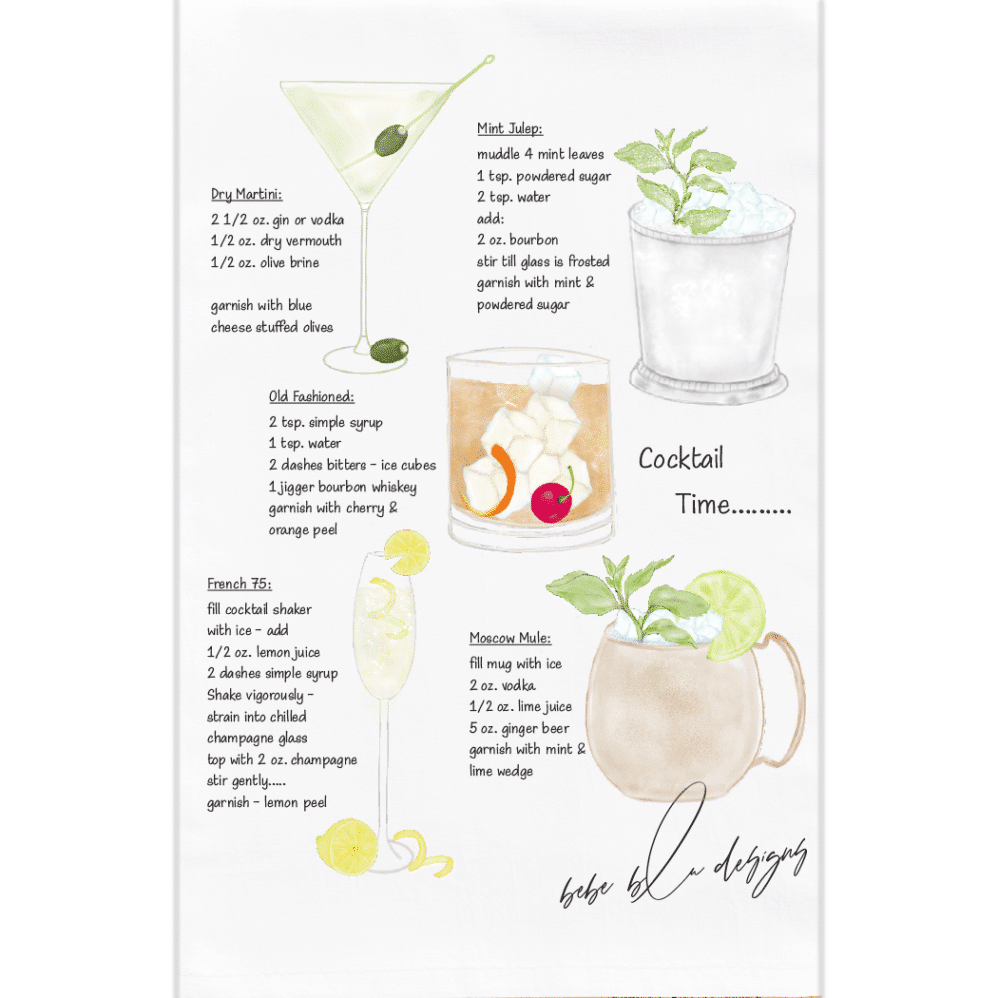 Dry Martini:
2 1/2 oz. gin or vodka
1/2 oz. dry vermouth
1/2 oz. olive brine
garnish with blue
cheese stuffed olives
Mint Julep:
muddle 4 mint leaves
1 tsp. powdered sugar
2 tsp. water
add:
2 oz. bourbon
stir till glass is frosted
garnish with mint &
powdered sugar
Old Fashioned:
2 tsp. simple syrup
1 tsp. water
2 dashes bitters - ice cubes
1 jigger bourbon whiskey
garnish with cherry &
orange peel
Cocktail
Time.........
French 75:
fill cocktail shaker
with ice - add
1/2 oz. lemon juice
2 dashes simple syrup
Shake vigorously -
strain into chilled
champagne glass
top with 2 oz. champagne
stir gently.....
garnish - lemon peel
Moscow Mule:
fill mug with ice
2 oz. vodka
1/2 oz. lime juice
5 oz. ginger beer
garnish with mint &
lime wedge
bebe blu designs